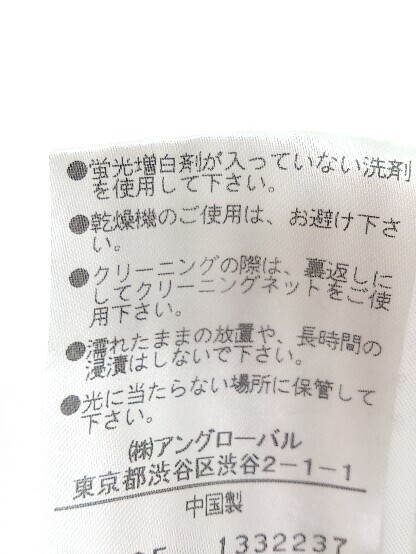 ●蛍光増白剤が入っていない洗剤
を使用して下さい。
●乾燥機のご使用は、お避け下さ
い。
●クリーニングの際は、裏返しに
してクリーニングネットをご使
用下さい。
●濡れたままの放置や、長時間の
浸漬はしないで下さい。
●光に当たらない場所に保管して
下さい。
㈱アングローバル
東京都渋谷区渋谷2-1-1
中国製
1332237